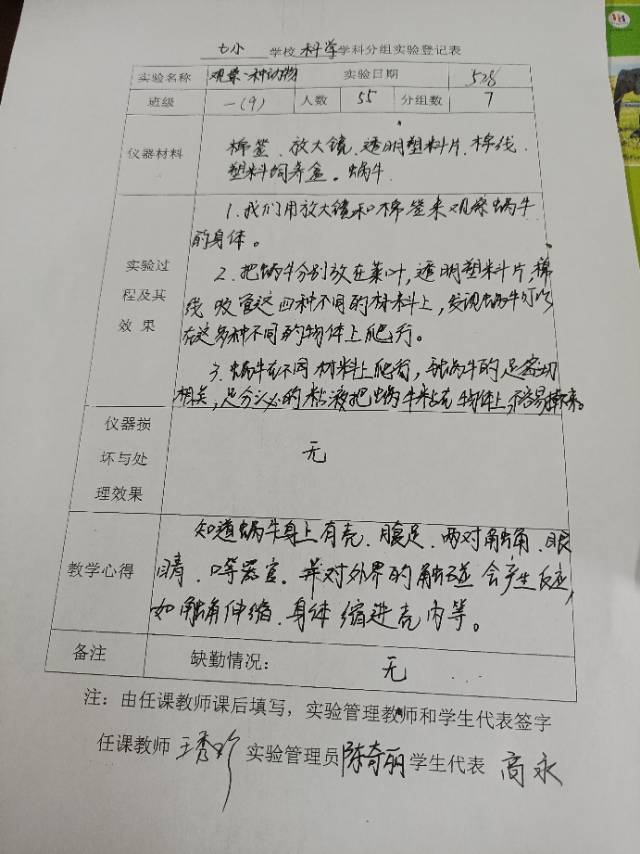 七小 学校 科学 学科分组实验登记表
实验名称 观察一种动物 实验日期 5.28
班级 一(9) 人数 55 分组数 7
仪器材料
棉签、放大镜、透明塑料片、棉线、
塑料饲养盒。蜗牛
实验过
程及其
效果
1.我们用放大镜和棉签来观察蜗牛
的身体。
2.把蜗牛分别放在菜叶,透明塑料片,棉
线 吸管这四种不同的材料上,发现蜗牛可以
在这多种不同的物体上爬行。
3.蜗牛在不同材料上爬行,和蜗牛的足密切
相关,足分泌的粘液把蜗牛粘在物体上,不容易掉下来。
仪器损
坏与处
理效果
无
教学心得
知道蜗牛身上有壳、腹足、两对触角、眼
睛、口等器官。并对外界的触碰会产生反应,
如触角伸缩、身体缩进壳内等。
备注 缺勤情况: 无
注:由任课教师课后填写,实验管理教师和学生代表签字
任课教师 王秀珍 实验管理员 陈奇丽 学生代表 高永